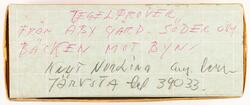 TEGELPROVER
FRÅN ÅBY GÅRD. SÖDER OM
BÄCKEN MOT BYN.
Knut Nordina
JÄRVSTA tel 39033.